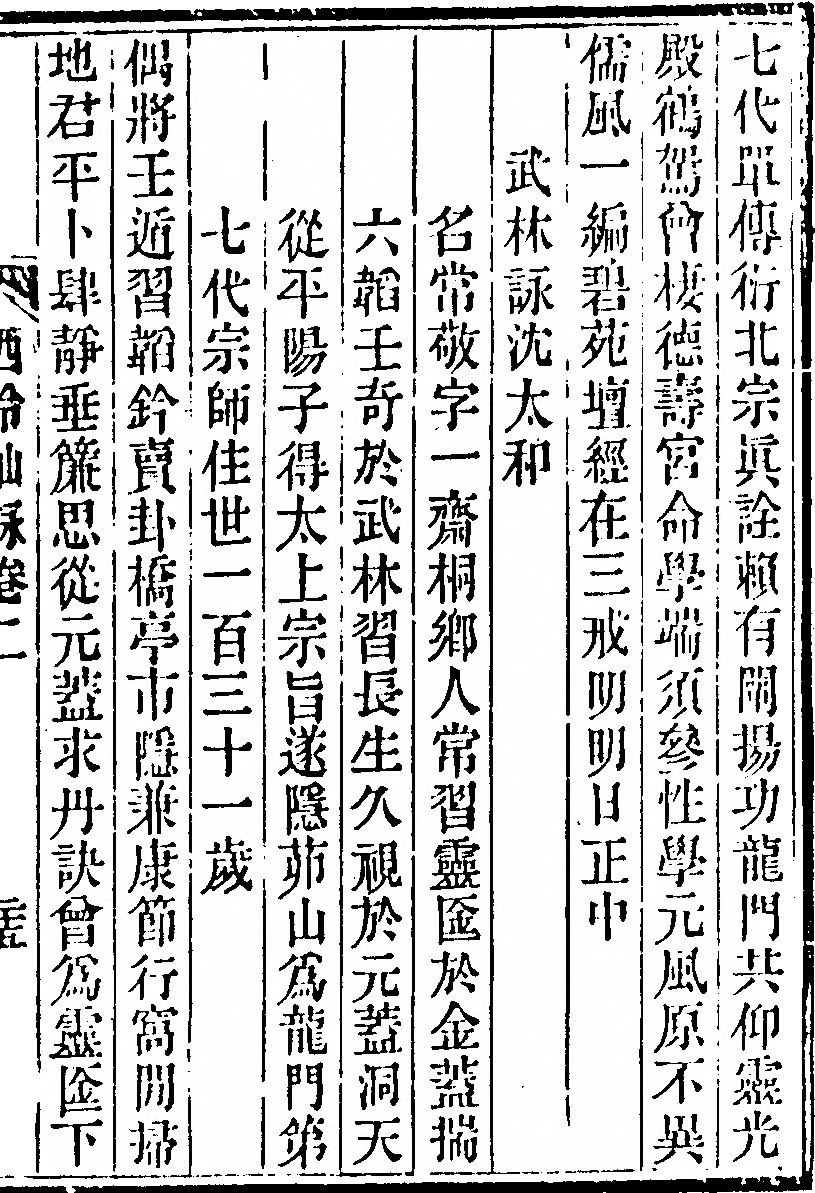 七代單傳衍北宗眞詮賴有闡揚功龍門共仰靈光
殿鶴駕曾棲德壽宮命學端須參性學元風原不異
儒風一編碧苑壇經在三戒明明日正中
武林詠沈太和
名常敬字一齋桐鄉人常習靈匢於金蓋揣
六韜壬奇於武林習長生久視於元蓋洞天
從平陽子得太上宗旨遂隱茆山爲龍門第
七代宗師住世一百三十一歲
偶將壬遁習韜鈐賣卦橋亭市隱兼康節行窩閒掃
地君平卜肆靜垂簾思從元蓋求丹訣曾爲靈匢下
西泠仙詠卷二